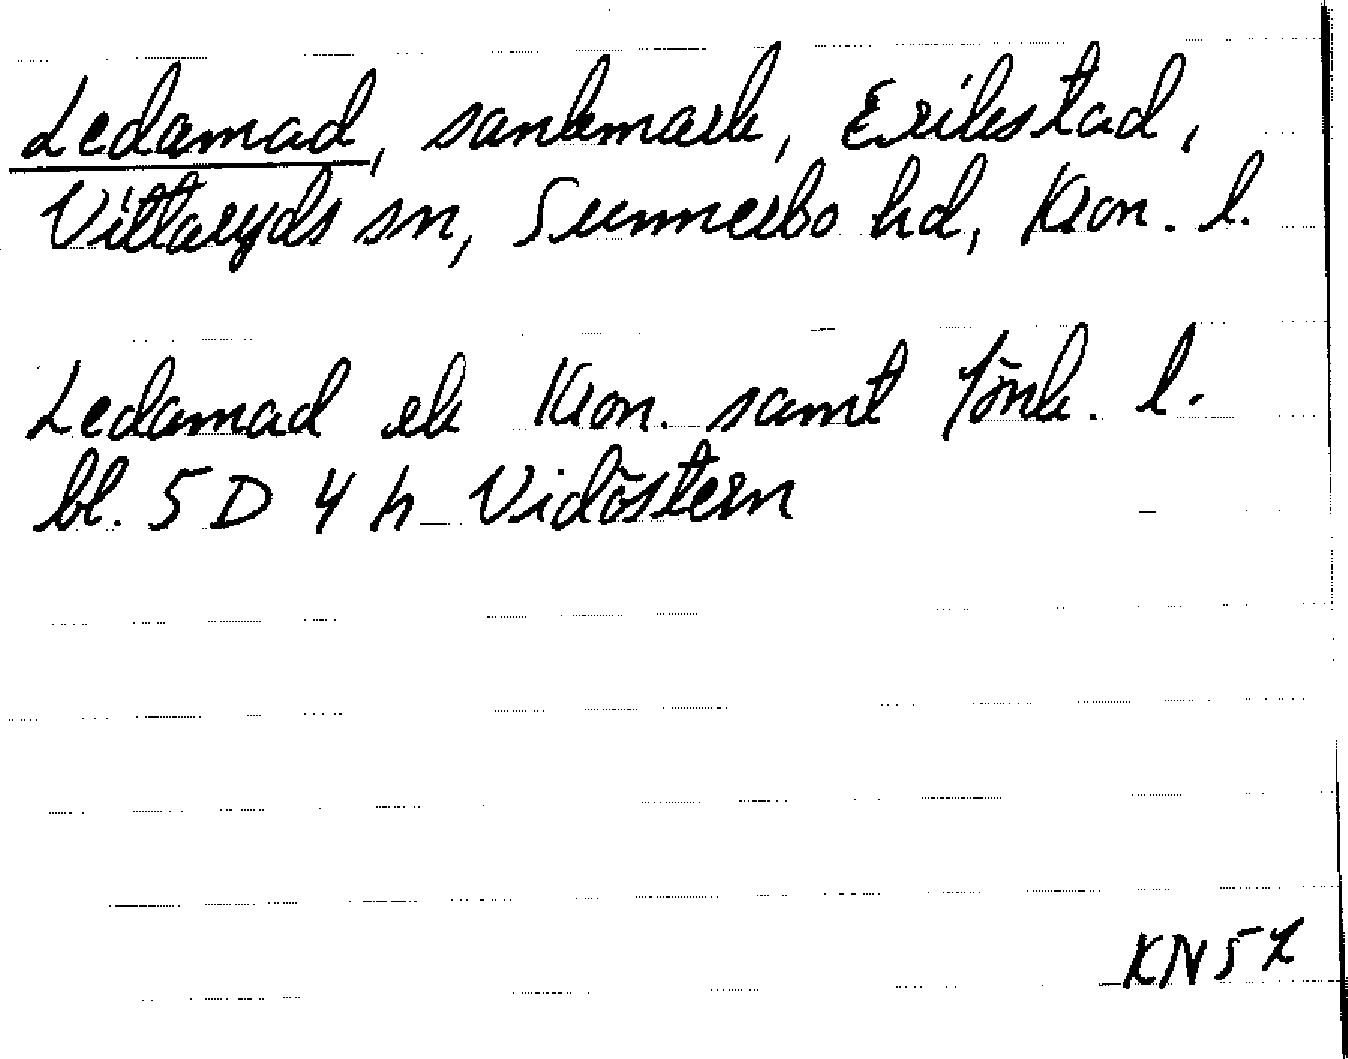 Ledamad, sankmark, Erikstad,
Vittaryds sn, Sunnerbo hd, Kron. l.
Ledamad ek Kron. samt Jönk. l.
bl. 5 D 4 h Vidöstern